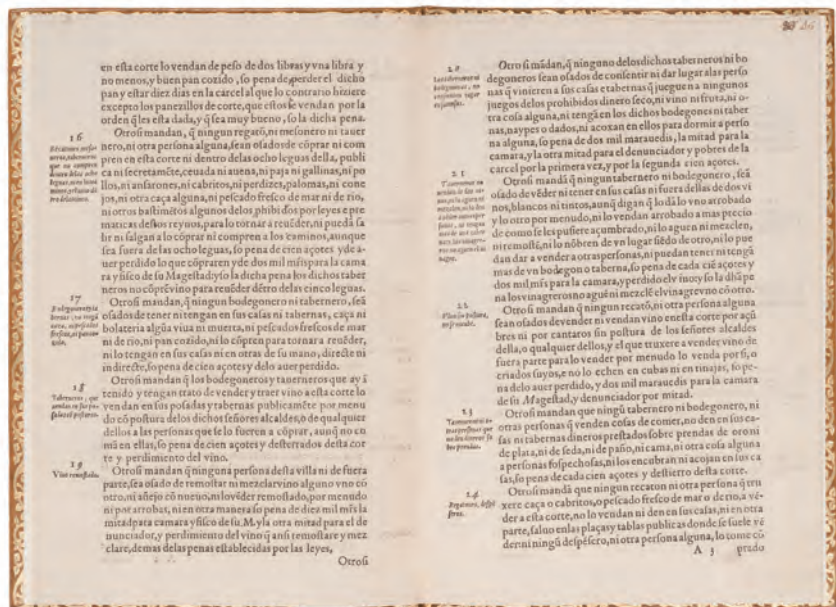 en esta corte lo vendan de peso de dos libras y vna libra y
no menos, y buen pan cozido, so pena de perder el dicho
pan y estar diez dias en la carcel al que lo contrario hiziere
excepto los panezillos de corte, que estos se vendan por la
orden q̃ les esta dada, y q̃ sea muy bueno, so la dicha pena.
16
Otrosi mandan, q̃ ningun regatõ, ni mesonero ni tauer
nero, ni otra persona alguna, sean osados de cõprar ni com
pren en esta corte ni dentro delas ocho leguas della, publi
ca ni secretamẽte, ceuada ni auena, ni paja ni gallinas, ni po
llos, ni ansarones, ni cabritos, ni perdizes, palomas, ni cone
jos, ni otra caça alguna, ni pescado fresco de mar ni de rio,
ni otros bastimẽtos algunos delos phibidos por leyes e pre
maticas destos reynos, para lo tornar a reuẽder, ni puedã sa
lir ni salgan a lo cõprar ni compren a los caminos, aunque
sea fuera de las ocho leguas, so pena de cien açotes y de a-
uer perdido lo que cõpraren y de dos mil mr̃s para la cama
ra y fisco de su Magestad: y so la dicha pena los dichos taber
neros no cõprẽ vino para reuẽder dẽtro delas cinco leguas.
17
Otrosi mandan, q̃ ningun bodegonero ni tabernero, seã
osados de tener ni tengan en sus casas ni tabernas, caça ni
bolateria algũa viua ni muerta, ni pescados frescos de mar
ni de rio, ni pan cozido, ni lo cõpren para tornar a reuẽder,
ni lo tengan en sus casas ni en otras de su mano, directe ni
indirecte, so pena de cien açotes y delo auer perdido.
18
Otrosi mandan q̃ los bodegoneros y tauerneros que ay ã
tenido y tengan trato de vender y traer vino a esta corte lo
vendan en sus posadas y tabernas publicamẽte por menu
do cõ postura delos dichos señores alcaldes, o de qualquier
dellos a las personas que se lo fueren a cõprar, aunq̃ no co
mã en ellas, so pena de cien açotes y desterrados desta cor
te y perdimiento del vino.
19
Vino remostado.
Otrosi mandan q̃ ninguna persona desta villa ni de fuera
parte, sea osado de remostar ni mezclar vino alguno vno cõ
otro, ni añejo cõ nueuo, ni lo vẽder remostado, por menudo
ni por arrobas, ni en otra manera so pena de diez mil mr̃s la
mitad para camara y fisco de su M. y la otra mitad para el de
nunciador, y perdimiento del vino q̃ ansi remostare y mez
clare, demas delas penas establecidas por las leyes,
Otrosi
20
Otro si mãdan, q̃ ninguno delos dichos taberneros ni bo
degoneros sean osados de consentir ni dar lugar a las perso
nas q̃ vinieren a sus casas e tabernas q̃ jueguen a ningunos
juegos delos prohibidos dinero seco, ni vino ni fruta, ni o-
tra cosa alguna, ni tengã en los dichos bodegones ni taber
nas, naypes o dados, ni acoxan en ellos para dormir a perso
na alguna, so pena de dos mil marauedis, la mitad para la
camara, y la otra mitad para el denunciador y pobres de la
carcel por la primera vez, y por la segunda cien açotes.
21
Otrosi mandã q̃ ningun tabernero ni bodegonero, seã
osado de vẽder ni tener en sus casas ni fuera dellas de dos vi
nos, blancos ni tintos, aunq̃ digan q̃ lo dã lo vno arrobado
y lo otro por menudo, ni lo vendan arrobado a mas precio
de como se les pusiere açumbrado, ni lo aguen ni mezclen,
ni remostẽ, ni lo nõbren de vn lugar siẽdo de otro, ni lo pue
dan dar a vender a otras personas, ni puedan tener ni tengã
mas de vn bodegon o taberna, so pena de cada ciẽ açotes y
dos mil mr̃s para la camara, y perdido el vino: y so la dha pe
na los vinagreros no aguẽ ni mezclẽ el vinagre vno cõ otro.
22
Otrosi mandan, q̃ ningun recatõ, ni otra persona alguna
sean osados de vender ni vendan vino en esta corte por açũ
bres ni por cantaros sin postura de los señores alcaldes
della, o qualquier dellos, y el que truxere a vender vino de
fuera parte para lo vender por menudo lo venda por si, o
criados suyos, e no lo echen en cubas ni en tinajas, so pe-
na delo auer perdido, y dos mil marauedis para la camara
de su Magestad, y denunciador por mitad.
23
Otrosi mandan que ningũ tabernero ni bodegonero, ni
otras personas q̃ venden cosas de comer, no den en sus ca-
sas ni tabernas dineros prestados sobre prendas de oro ni
de plata, ni de seda, ni de paño, ni cama, ni otra cosa alguna
a personas sospechosas, ni los encubran ni acojan en sus ca
sas, so pena de cada cien açotes y destierro desta corte.
24
Otrosi mandã que ningun recaton ni otra persona q̃ tru
xere caça o cabritos, o pescado fresco de mar o de rio, a vẽ-
der a esta corte, no lo vendan ni den en sus casas, ni en otra
parte, saluo en las plaças y tablas publicas donde se suele vẽ
der: ni ningũ despẽsero, ni otra persona alguna, lo tome cõ
A 3 prado